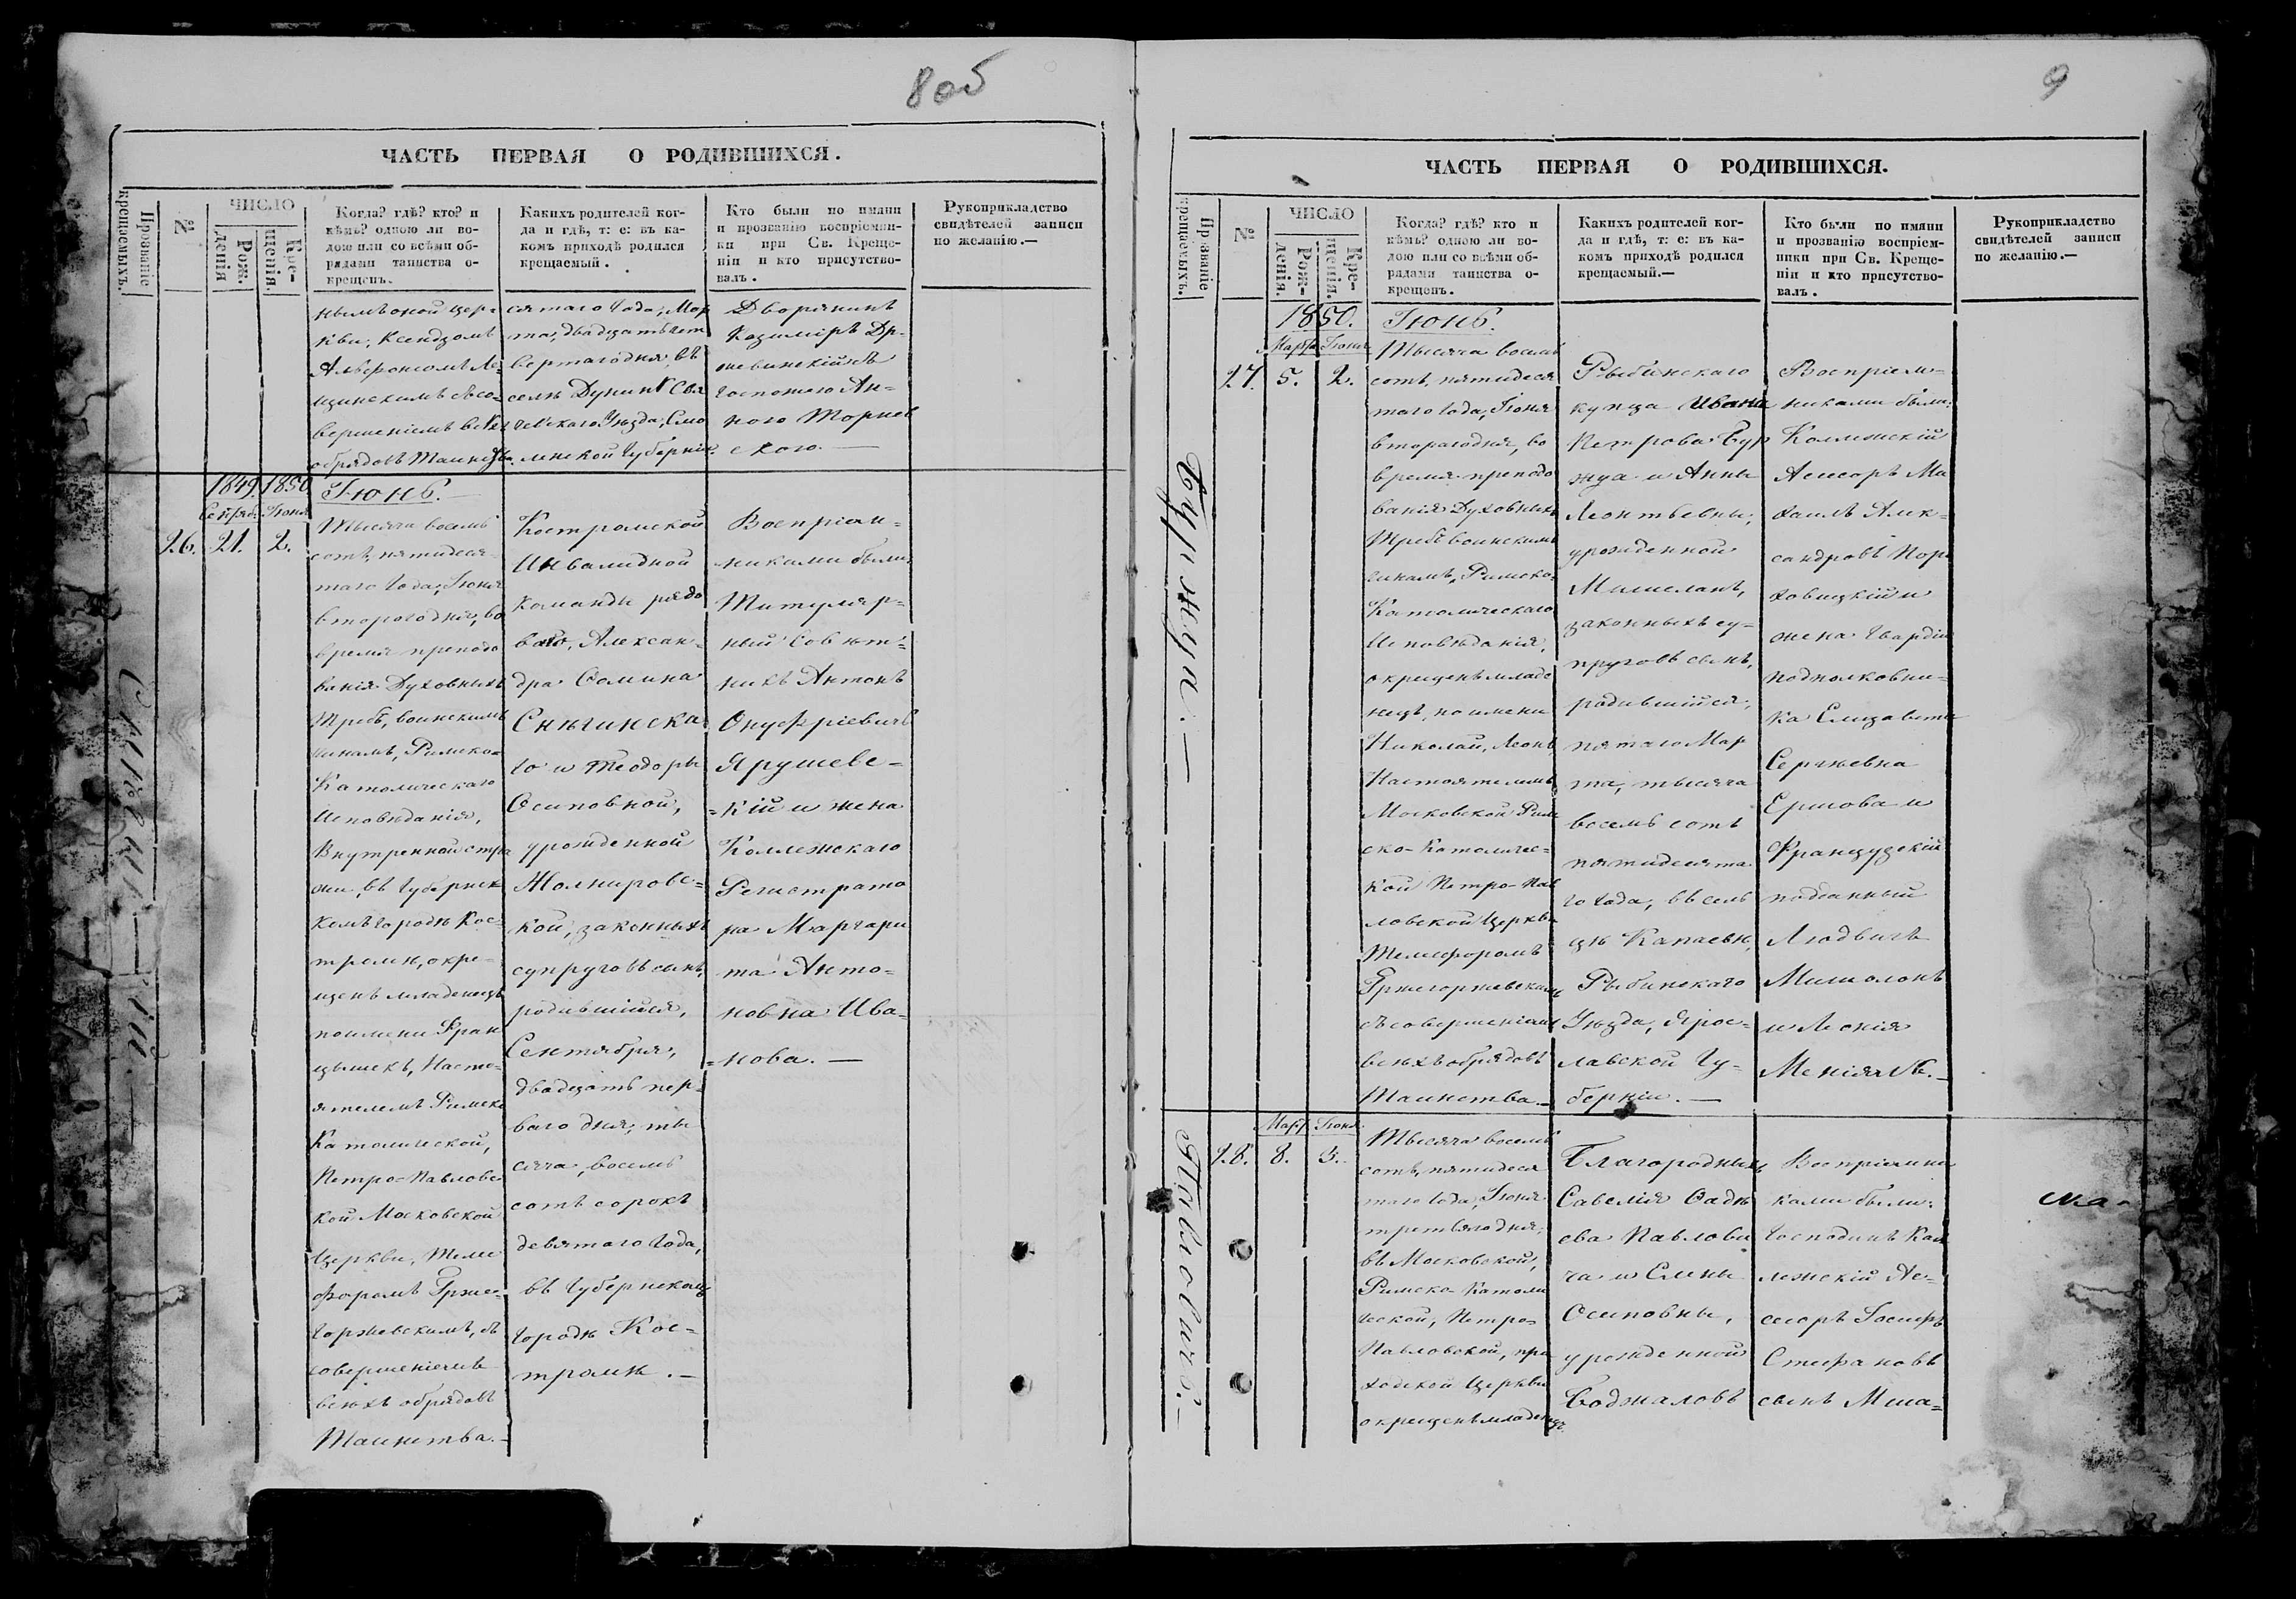 8 об
ЧАСТЬ ПЕРВАЯ О РОДИВШИХСЯ.
Прозваніе крещаемыхъ.
№
ЧИСЛО
Рож-
денія
Кре-
щенія.
Когда? гдѣ? кто? и
кѣмъ? одною ли во-
дою или со всѣми об-
рядами таинства о-
крещенъ.
Какихъ родителей ког-
да и гдѣ, т: е: въ ка-
комъ приходѣ родился
крещаемый.
Кто были по имяни
и прозванію воспріемни-
ки при Св. Креще-
ніи и кто присутство-
валъ.
Рукоприкладство
свидѣтелей записи
по желанію.—
нымъ оной цер-
кви, Ксендзомъ
Альфонсомъ Ле-
щинскимъ съ со-
вершеніемъ всѣхъ
обрядовъ Таинства.
сятаго Года, Мар
та, двадцать чет
вертаго дня, въ
селѣ Дунинѣ
чевскаго Уѣзда, Смо
ленской Губерніи.
Дворянинъ
Казиміръ Др-
жевинскій съ
госпожею Ан-
ною Торнев
скою.—
1849. 1850
Сентяб. Іюня
26. 21. 2.
Іюнь.—
Тысяча восемь
сотъ, пятидеся-
таго Года, Іюня
втораго дня, во
время препода
ванія Духовныхъ
Требъ, воинскимъ
чинамъ, Римско-
Католическаго
Исповѣданія,
Внутренной стра
жи, въ Губернск
комъ городѣ Кос-
тромѣ, окре-
щенъ младенецъ
по имени Фран
цышекъ, Насто-
ятелемъ Римско
Католической,
Петро-Павловс
кой Московской
Церкви, Теле
форомъ Грже-
горжевскимъ, съ
совершеніемъ
всѣхъ обрядовъ
Таинства.—
Костромской
Инвалидной
Команды рядо
ваго, Алексан-
дра Фомина
Снѣгинска
го и Теодоры
Осиповной,
урожденной
Жолнировс-
кой, законныхъ
супруговъ сынъ,
родившійся,
Сентября,
двадцать пер-
ваго дня, ты
сяча, восемь
сотъ сорокъ
девятаго Года,
въ Губернскомъ
городѣ Кос-
тромѣ.—
Воспріем-
никами были
Титуляр-
ный Совѣт-
никъ Антонъ
Онуфріевичъ
Ярушевс-
=кій и жена
Коллежскаго
Регистрато
ра Маргари
та Анто-
новна Ива-
=нова.—
9
ЧАСТЬ ПЕРВАЯ О РОДИВШИХСЯ.
Прозваніе крещаемыхъ.
№
ЧИСЛО
Рож-
денія.
Кре-
щенія.
Когда? гдѣ? кто и
кѣмъ? одною ли во-
дою или со всѣми об-
рядами таинства о-
крещенъ.
Какихъ родителей ког-
да и гдѣ, т: е: въ ка-
комъ приходѣ родился
крещаемый.—
Кто были по имяни
и прозванію воспріем-
ники при Св. Креще-
ніи и кто присутство-
валъ.
Рукоприкладство
свидѣтелей записи
по желанію.—
Буржуа.—
1850.
Марта Іюня
27. 5. 2.
Іюнь.
Тысяча восемь
сотъ, пятидеся
таго Года, Іюня
втораго дня, во
время препода
ванія Духовныхъ
Требъ воинскимъ
чинамъ, Римско-
Католическаго
Исповѣданія,
окрещенъ младе
нецъ, по имени
Николай, Леонъ
Настоятелемъ
Московской Рим
ско-Католичес-
кой Петро-Пав
ловской Церкви
Телефоромъ
Гржегоржевскимъ
съ совершеніемъ
всѣхъ обрядовъ
Таинства.—
Рыбинскаго
купца Ивана
Петрова Бур
жуа и Анны
Леонтьевны,
урожденной
Мишеланъ,
законныхъ су-
пруговъ сынъ,
родившійся,
пятаго Мар
та, тысяча
восемь сотъ
пятидесята
го Года, въ сель
цѣ Капаевѣ,
Рыбинскаго
Уѣзда, Ярос-
лавской Гу-
берніи.—
Воспріем-
никами были:
Коллежскій
Асессоръ Ми
хаилъ Алек-
сандровъ Пор
ховицкій и
жена Гвардіи
подполковни-
ка Елизавета
Сергѣевна
Ершова и
Французскій
подданный
Людвигъ
Мишолонъ
и Леонія
Павловичъ.—
Мар. Іюня
28. 8. 3.
Тысяча восемь
сотъ, пятидеся
таго Года, Іюня
третьяго дня,
въ Московской,
Римско-Католи
ческой, Петро-
Павловской, при
ходской Церкви
окрещенъ младенецъ
Благородныхъ
Савелія Фадѣ
ева Павлови
ча и Елены
Осиповны,
урожденной
Боджаловъ
Воспріемни
ками были:
Господинъ Кол
лежскій Ас-
сесоръ Іосифъ
Стефановъ
сынъ Мша-